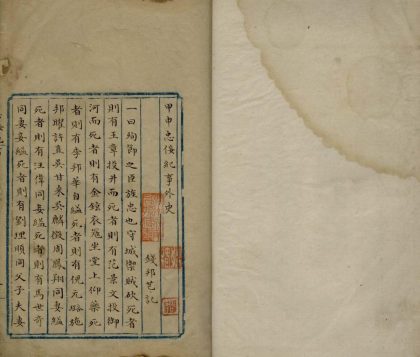 甲申忠佞紀事外史
錢邦芑記
一曰殉節之臣旌忠也守城禦賊砍死者
則有王章投井而死者則有范景文投御
河而死者則有金鉉衣冠坐堂上仰藥死
者則有李邦華自縊死者則有倪元璐施
邦曜許直吳甘來吳麟徵周鳳翔同妾縊
死者則有汪偉同妾縊死者則有馬世奇
同妻妾縊死者則有劉理順同父子夫妻